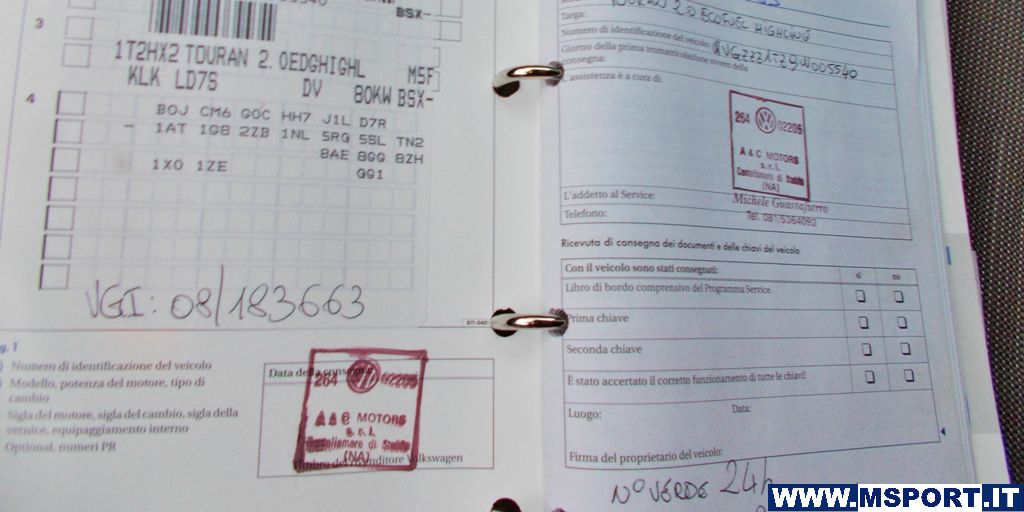 BSX-
3
1T2HX2 TOURAN 2. 0EDGHIGHL M5F
KLK LD7S DV 80KW BSX-
4
BOJ CM6 GOC HH7 J1L D7R
- 1AT 1G8 2ZB 1NL 5RG 5SL TN2
8AE 8GG 8ZH
1X0 1ZE GG1
VGI: 08/183663
Numero di identificazione del veicolo
Modello, potenza del motore, tipo di
cambio
Sigla del motore, sigla del cambio, sigla della
vernice, equipaggiamento interno
Optional, numeri PR
Data della consegna
264 02205
A & C MOTORS
s.r.l.
Castellamare di Stabia
(NA)
Timbro del rivenditore Volkswagen
TOURAN 2.0 ECOFUEL HIGHLINE
Targa:
Numero di identificazione del veicolo:
Giorno della prima immatricolazione ovvero della
consegna:
L'assistenza è a cura di:
264 02205
A & C MOTORS
s.r.l.
Castellamare di Stabia
(NA)
L'addetto al Service:
Michele Guastafierro
Telefono:
Tel. 081/5364092
Ricevuta di consegna dei documenti e delle chiavi del veicolo
Con il veicolo sono stati consegnati: sì no
Libro di bordo comprensivo del Programma Service
Prima chiave
Seconda chiave
È stato accertato il corretto funzionamento di tutte le chiavi!
Luogo: Data:
Firma del proprietario del veicolo:
N° VERDE 24h
WWW.MSPORT.IT